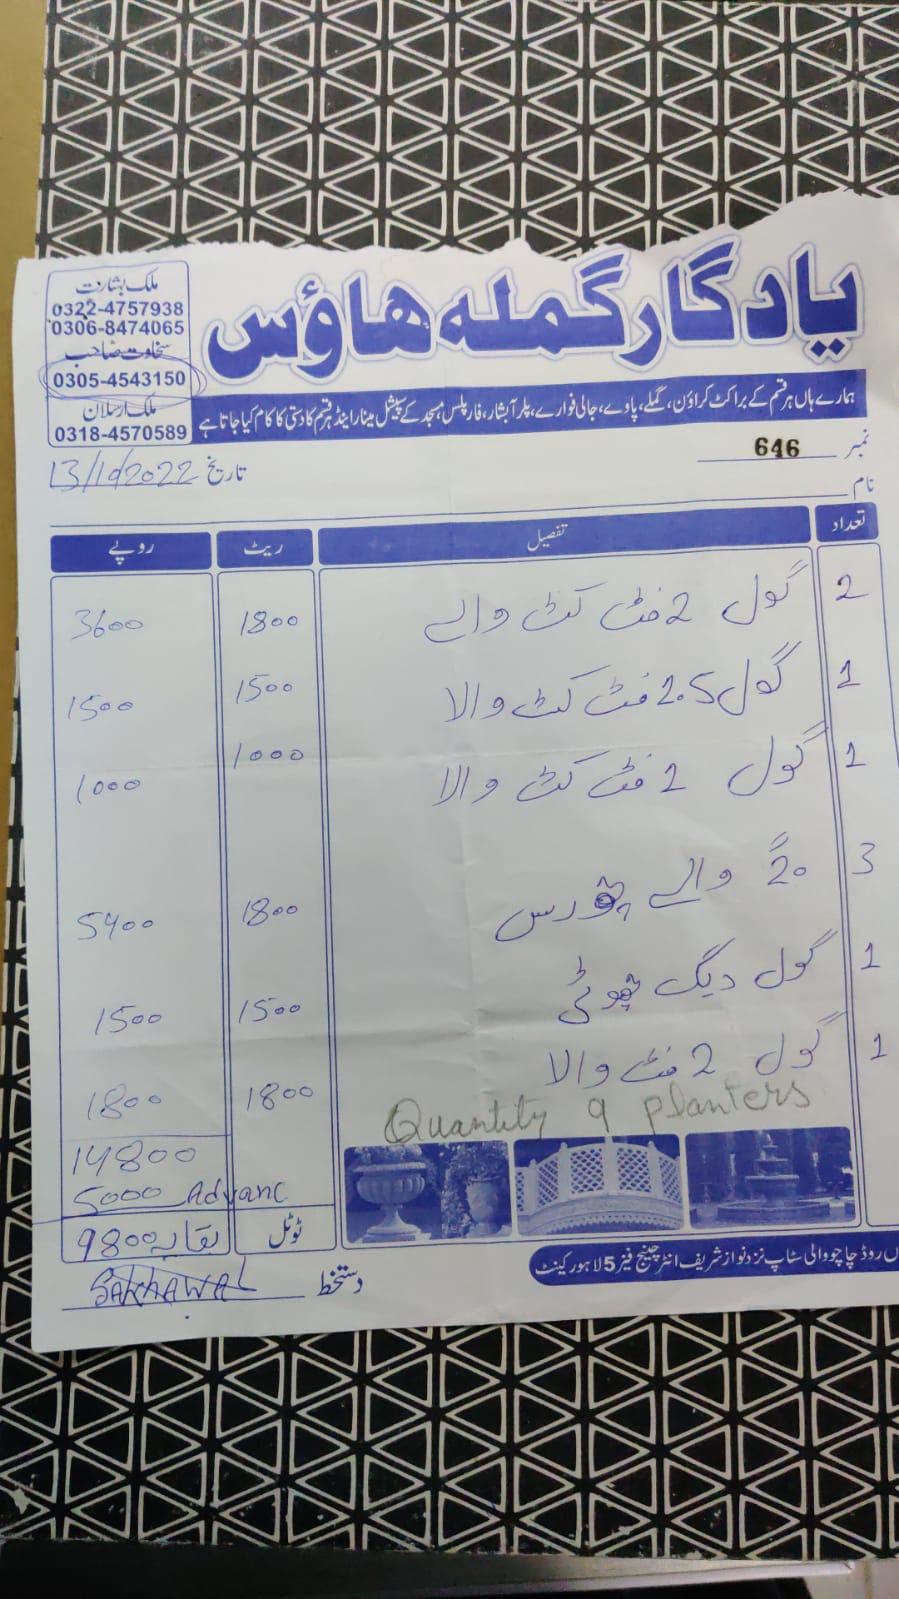 یادگار گملہ ہاؤس
ملک بشارت
0322-4757938
0306-8474065
سخاوت صاحب
0305-4543150
ملک ارسلان
0318-4570589
ہمارے ہاں ہر قسم کے براکٹ کراؤن، گملے، پاوے، جالی فوارے، پلر آبشار، فارپلس، مسجد کے سپیشل مینار اینڈ ہر قسم کا دستی کا کام کیا جاتا ہے
نمبر 646
تاریخ 13/10/2022
نام
تعداد تفصیل ریٹ روپے
2 گول 2 فٹ کٹ والے 1800 3600
1 گول 2.5 فٹ کٹ والا 1500 1500
1 گول 2 فٹ کٹ والا 1000 1000
3 20 والے 1800 5400
1 گول دیگ 1500 1500
1 گول 2 فٹ والا 1800 1800
Quantity 9 planters
14800
5000 Advanc
ٹوٹل بقایہ 9800
دستخط SAKHAWAL
روڈ چاچو والی سٹاپ نزد نواز شریف انٹر چینج فیز 5 لاہور کینٹ